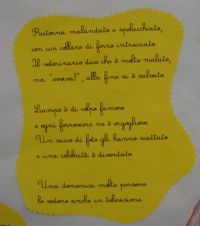 Ritorna malandato e spelacchiato,
con un collare di ferro intrecciato.
Il veterinario dice che è molto malato,
ma "evviva!", alla fine si è salvato.
Lampo è di colpo famoso
e ogni ferroviere ne è orgoglioso.
Un sacco di foto gli hanno scattato
e una celebrità è diventato.
Una domenica molte persone
lo vedono anche in televisione